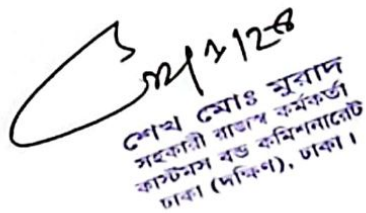 শেখ মোঃ মুরাদ
সহকারী রাজস্ব কর্মকর্তা
কাস্টমস বন্ড কমিশনারেট
ঢাকা (দক্ষিণ), ঢাকা।